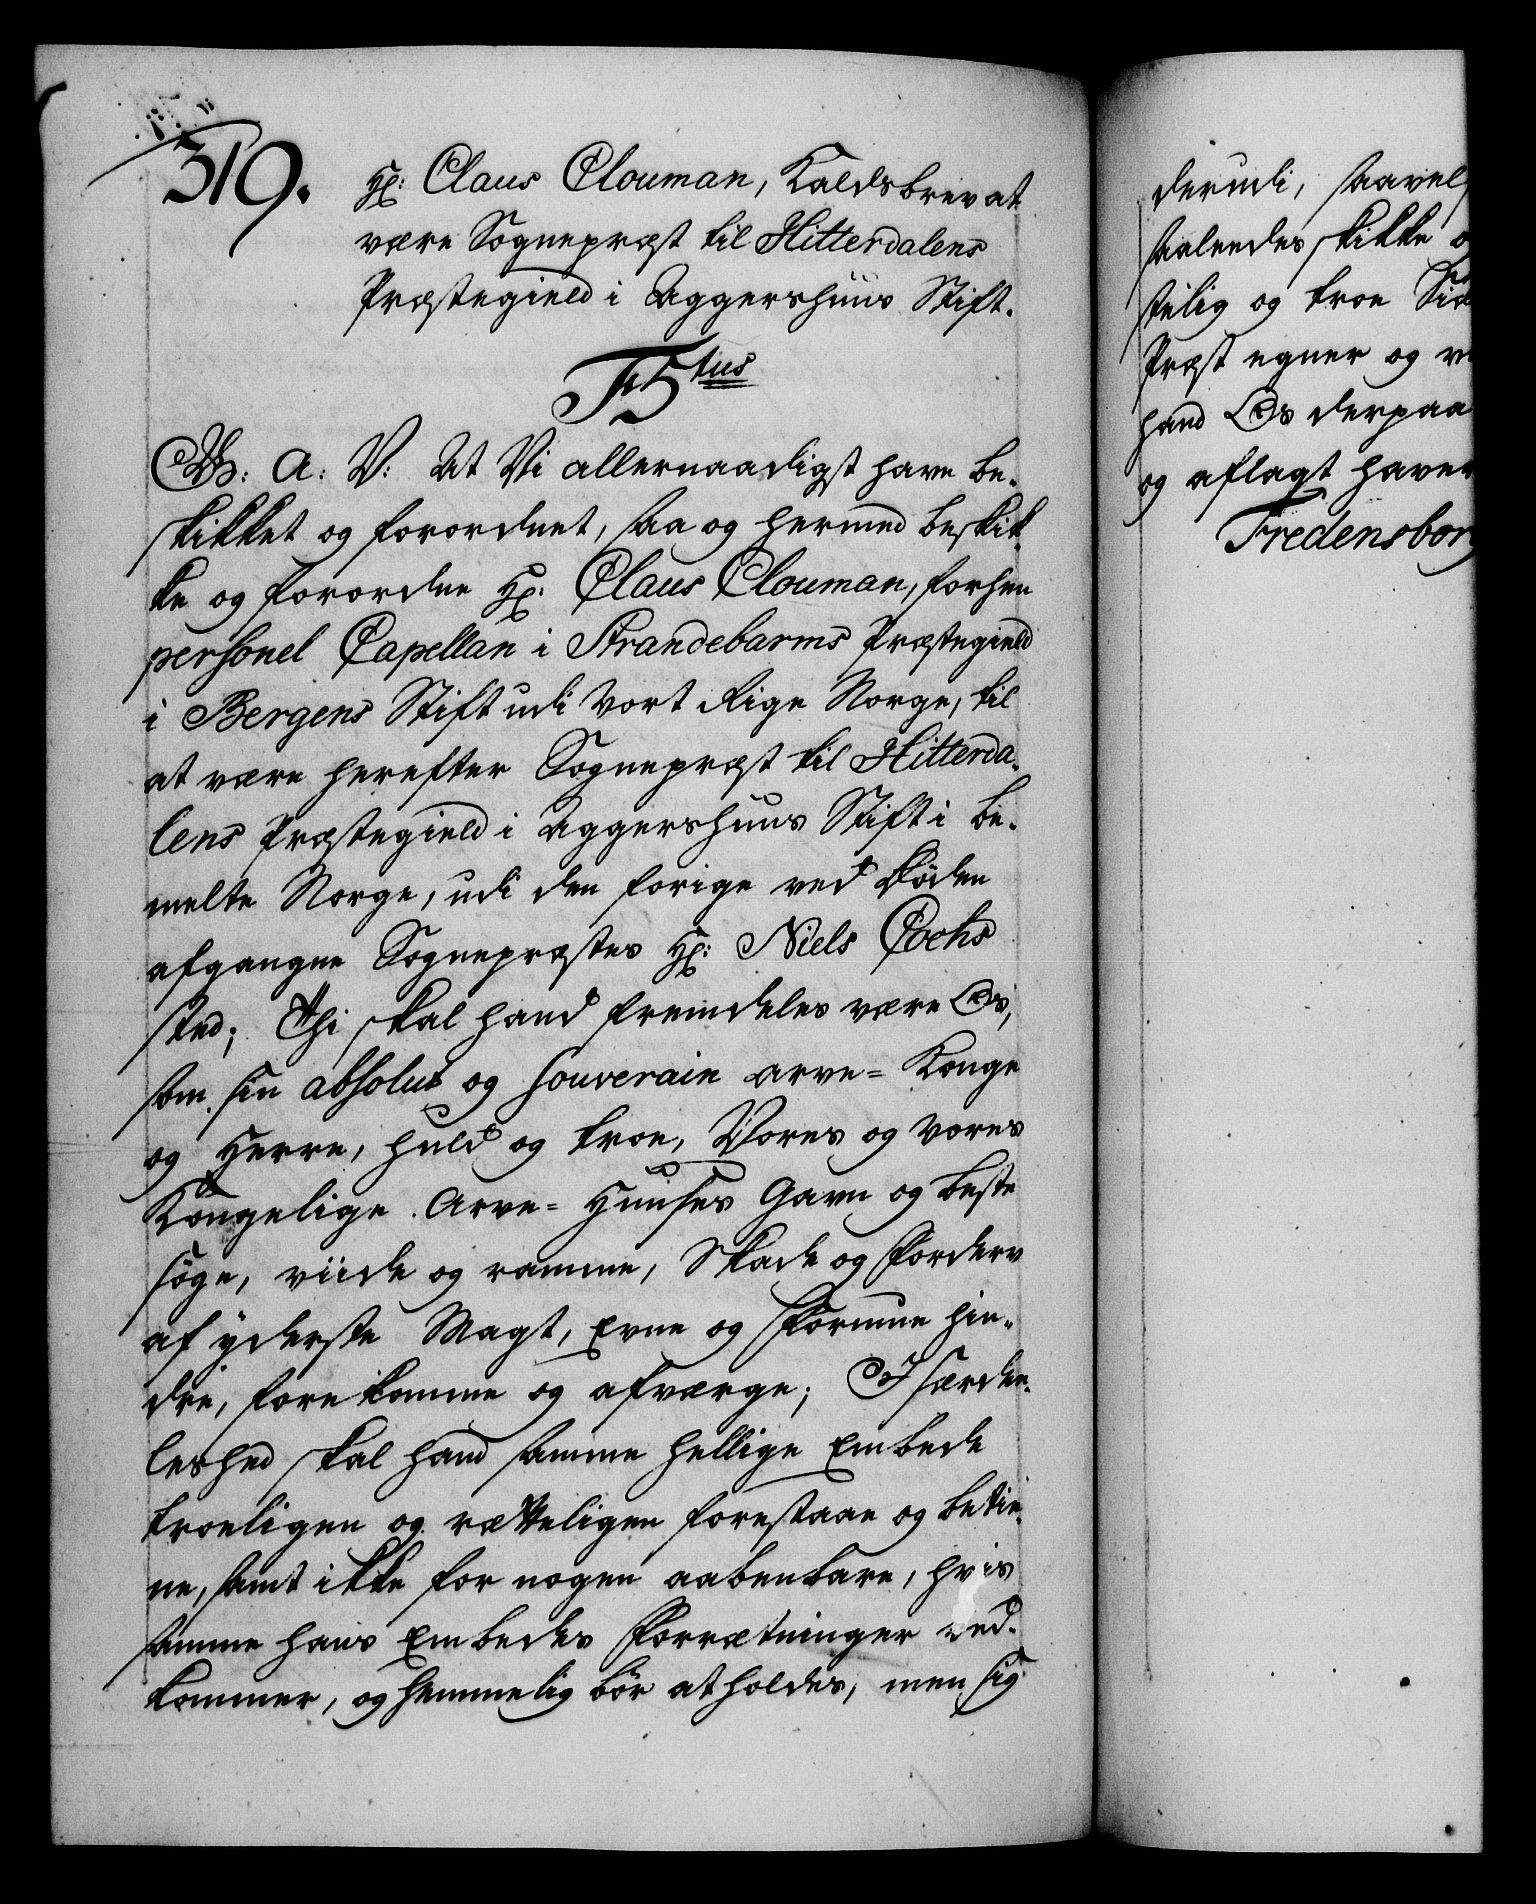 319.
Hr: Claus Clouman, Kaldsbrev at
være Sognepræst til Hitterdalens
Præstegield i Aggershuus Stift.
F5tus
G: A: V: At Vi allernaadigst have be-
skikket og forordnet, saa og hermed beskik-
ke og forordne Hr: Claus Clouman, forhen
personel Capellan i Strandebarms Præstegield
i Bergens Stift udi Vort Rige Norge, til
at være herefter Sognepræst til Hitterda-
lens Præstegield i Aggershuus Stift i be-
melte Norge, udi den forige ved Døden
afgangne Sognepræstes Hr: Niels Cochs
sted; Thi skal hand fremdeles være Os,
som sin absolut og souverain arve= Konge
og Herre, huld og troe, Vores og Vores
Kongelige Arve= Huuses Gavn og beste
søge, viide og ramme, Skade og Forderv
af yderste Magt, Evne og Formue hin-
dre, forekomme og afværge; Isærdee-
leshed skal hand samme hellige Embede
troeligen og rætteligen forestaae og betie-
ne, samt ikke for nogen aabenbare, hvis
samme hans Embedes Forrætninger ved-
kommer, og hemmelig bör at holdes, men sig
derudi, saavel
saaledes skikke
stelig og troe
Præst egner og
hand Os derpaa
og aflagt haver
Fredensborg